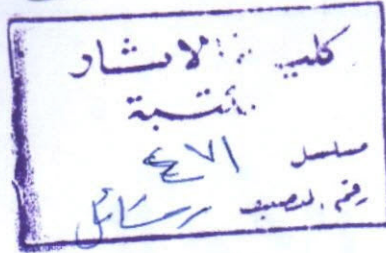 كلية الاثار
مكتبة
مسلسل ٤٧١
رقم التصنيف رسائل